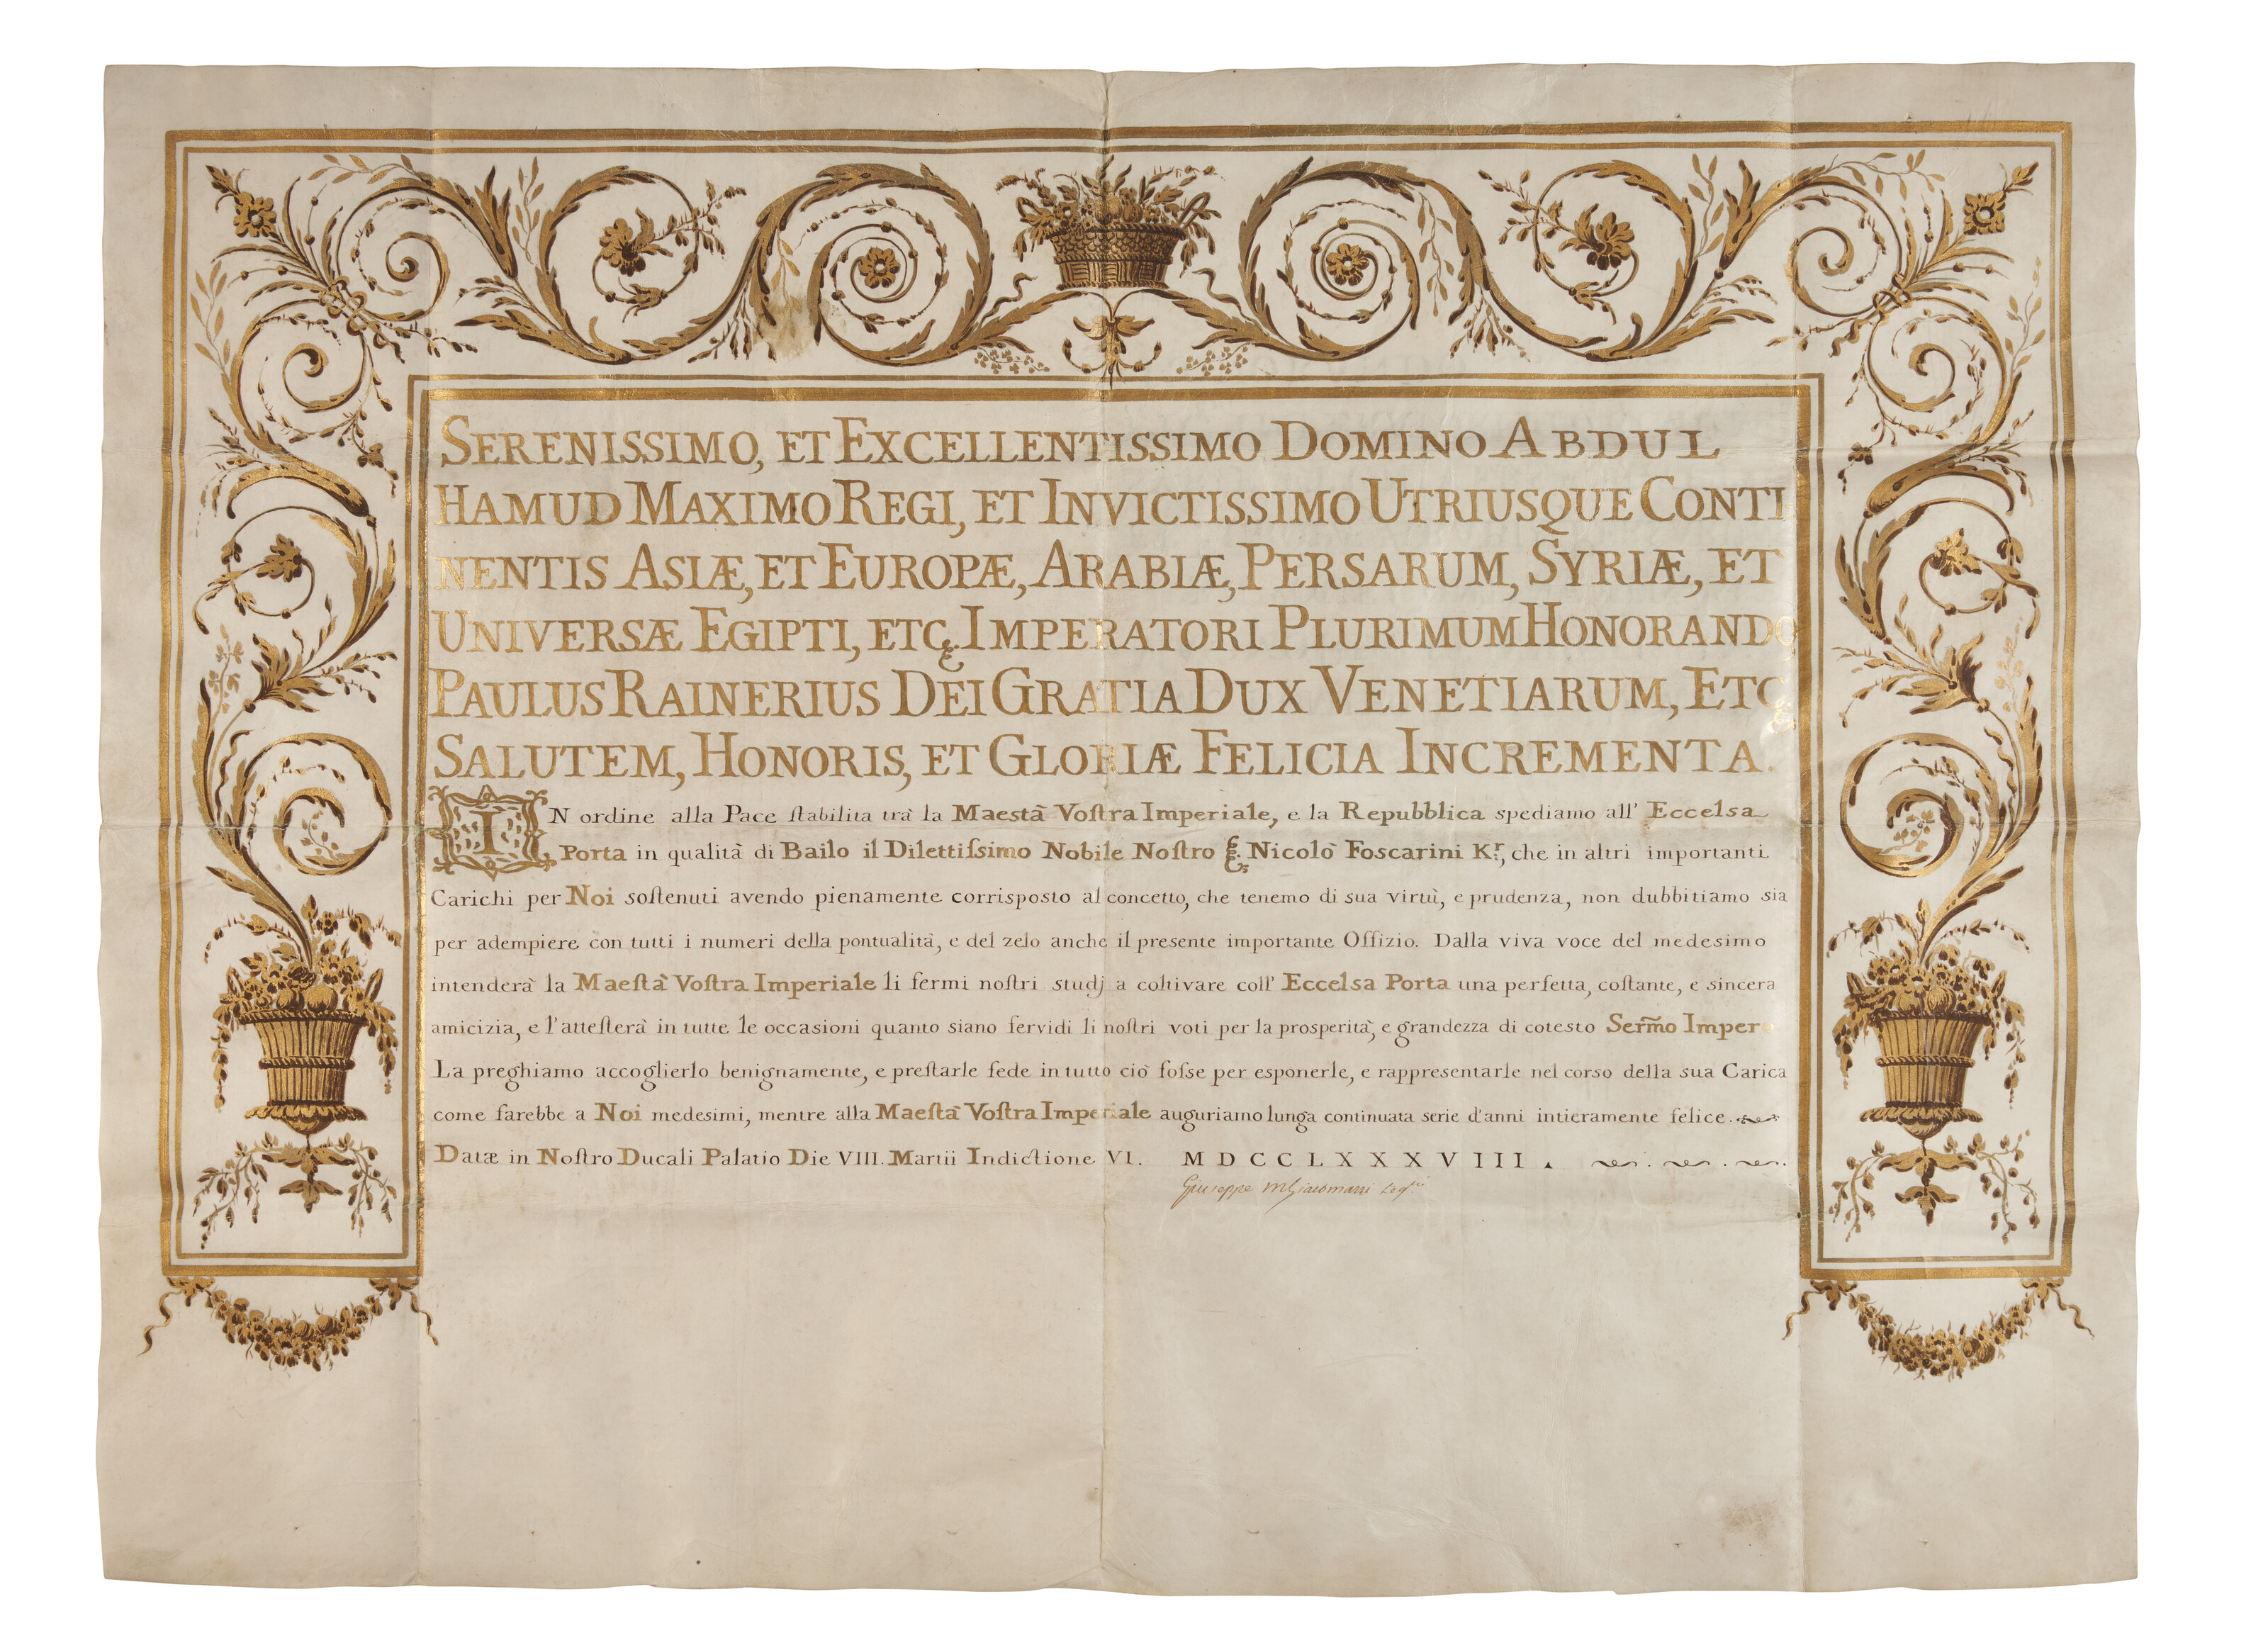 SERENISSIMO, ET EXCELLENTISSIMO DOMINO ABDUL
HAMUD MAXIMO REGI, ET INVICTISSIMO UTRIUSQUE CONTI
NENTIS ASIÆ, ET EUROPÆ, ARABIÆ, PERSARUM, SYRIÆ, ET
UNIVERSÆ EGIPTI, ETC. IMPERATORI PLURIMUM HONORANDO,
PAULUS RAINERIUS DEI GRATIA DUX VENETIARUM, ETC
SALUTEM, HONORIS, ET GLORIÆ FELICIA INCREMENTA.
IN ordine alla Pace ſtabilita trà la Maestà Voſtra Imperiale, e la Repubblica spediamo all' Eccelsa
Porta in qualità di Bailo il Dilettiſsimo Nobile Noſtro Nicolò Foscarini K.r, che in altri importanti
Carichi per Noi soſtenuti avendo pienamente corrisposto al concetto, che tenemo di sua virtù, e prudenza, non dubbitiamo sia
per adempiere con tutti i numeri della pontualità, e del zelo anche il presente importante Offizio. Dalla viva voce del medesimo
intenderà la Maeſtà Voſtra Imperiale li fermi noſtri studj a coltivare coll' Eccelsa Porta una perfetta, coſtante, e sincera
amicizia, e l'atteſterà in tutte le occasioni quanto siano fervidi li noſtri voti per la prosperità, e grandezza di cotesto Serm̃o Impero
La preghiamo accoglierlo benignamente, e preſtarle fede in tutto ciò foſse per esponerle, e rappresentarle nel corso della sua Carica
come farebbe a Noi medesimi, mentre alla Maeſtà Voſtra Imperiale auguriamo lunga continuata serie d'anni intieramente felice.
Datæ in Noſtro Ducali Palatio Die VIII. Martii Indictione VI. MDCCLXXXVIII.
Giuseppe